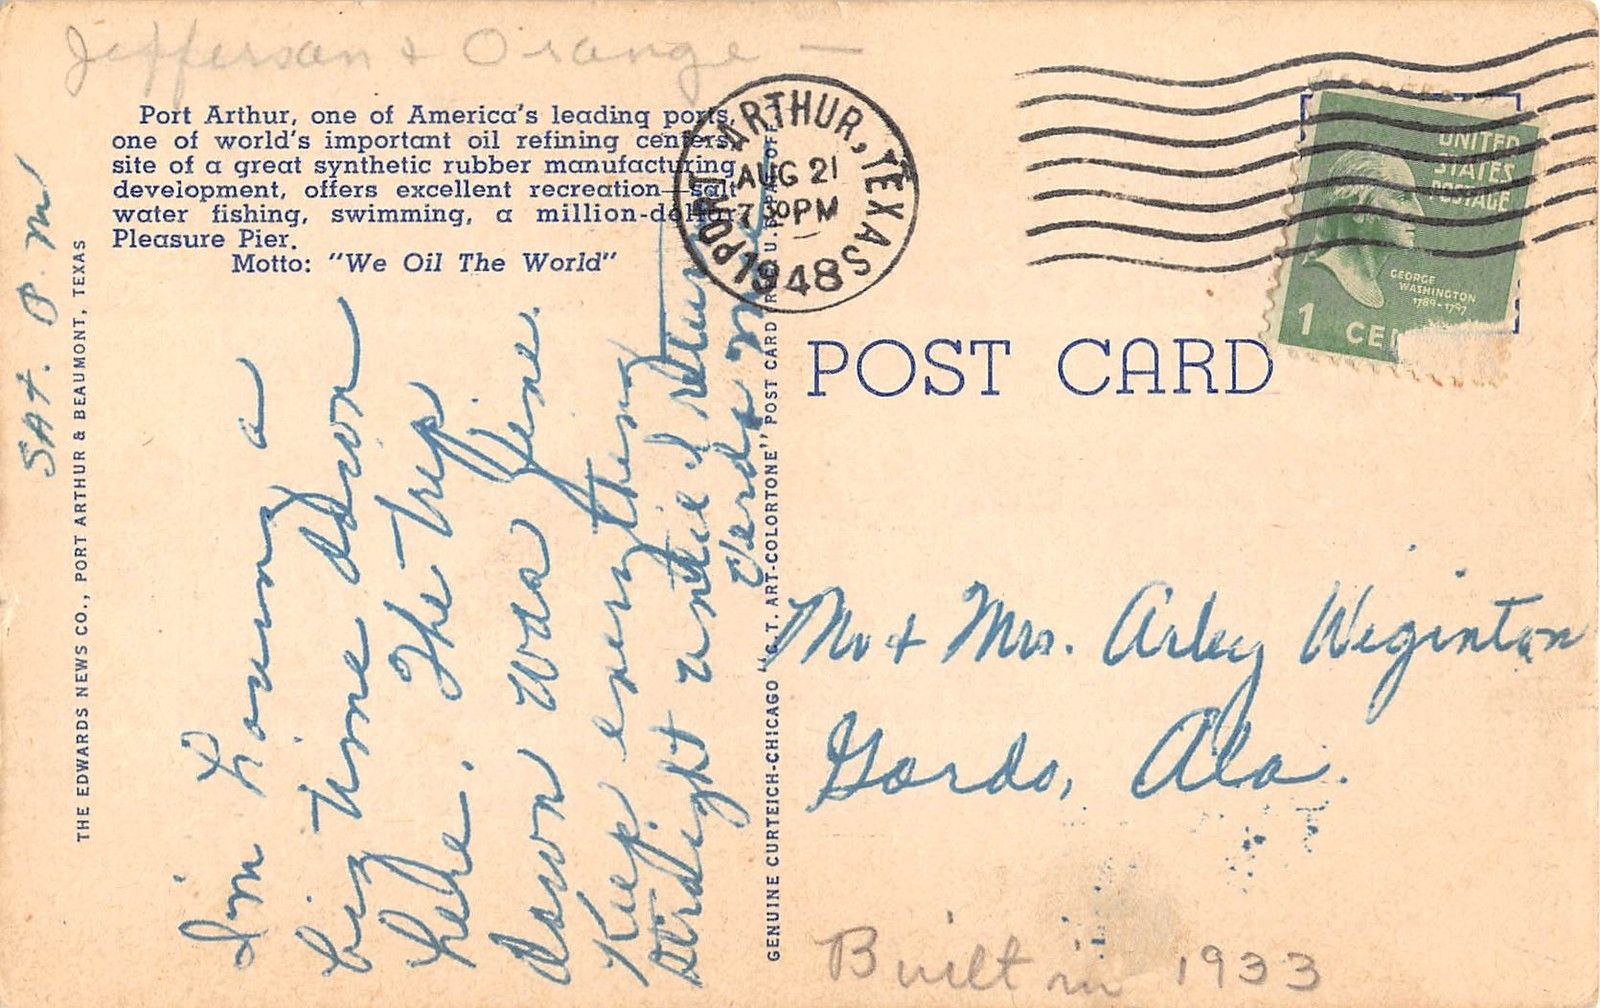 Jefferson & Orange —
Port Arthur, one of America's leading ports,
one of world's important oil refining centers,
site of a great synthetic rubber manufacturing
development, offers excellent recreation—salt
water fishing, swimming, a million-dollar
Pleasure Pier.
Motto: "We Oil The World"
PORT ARTHUR, TEXAS
AUG 21
7 30 PM
1948
UNITED
STATES
POSTAGE
GEORGE
WASHINGTON
1789-1797
1 CEN
POST CARD
SAT. P.M
THE EDWARDS NEWS CO., PORT ARTHUR & BEAUMONT, TEXAS
I'm having a
big time down
here. The trip
down was fine.
Keep everything
straight until I return
Verda
GENUINE CURTEICH-CHICAGO "C.T. ART-COLORTONE" POST CARD
Mr & Mrs. Arley Weginton
Gordo, Ala.
Built in 1933